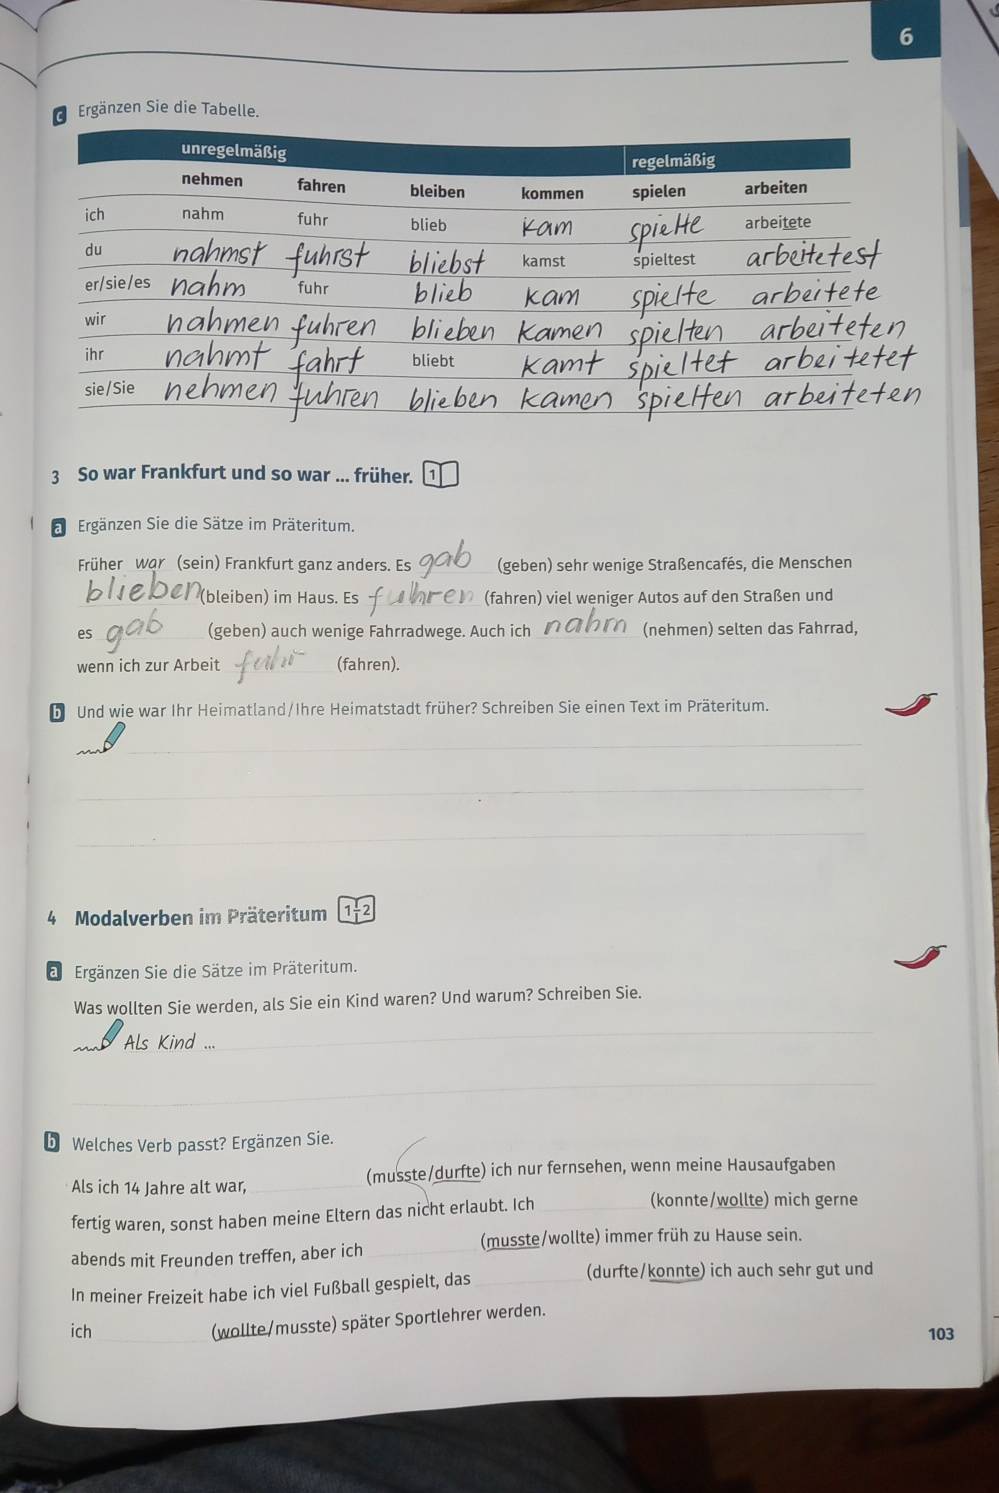 6
c Ergänzen Sie die Tabelle.
unregelmäßig regelmäßig
nehmen fahren bleiben kommen spielen arbeiten
ich nahm fuhr blieb kam spielte arbeitete
du nahmst fuhrst bliebst kamst spieltest arbeitetest
er/sie/es nahm fuhr blieb kam spielte arbeitete
wir nahmen fuhren blieben kamen spielten arbeiteten
ihr nahmt fahrt bliebt kamt spieltet arbeitetet
sie/Sie nehmen fuhren blieben kamen spielten arbeiteten
3 So war Frankfurt und so war ... früher. 1
a Ergänzen Sie die Sätze im Präteritum.
Früher war (sein) Frankfurt ganz anders. Es gab (geben) sehr wenige Straßencafés, die Menschen
blieben (bleiben) im Haus. Es fuhren (fahren) viel weniger Autos auf den Straßen und
es gab (geben) auch wenige Fahrradwege. Auch ich nahm (nehmen) selten das Fahrrad,
wenn ich zur Arbeit fuhr (fahren).
b Und wie war Ihr Heimatland/Ihre Heimatstadt früher? Schreiben Sie einen Text im Präteritum.
4 Modalverben im Präteritum 1 2
a Ergänzen Sie die Sätze im Präteritum.
Was wollten Sie werden, als Sie ein Kind waren? Und warum? Schreiben Sie.
Als Kind ...
b Welches Verb passt? Ergänzen Sie.
Als ich 14 Jahre alt war, (musste/durfte) ich nur fernsehen, wenn meine Hausaufgaben
fertig waren, sonst haben meine Eltern das nicht erlaubt. Ich (konnte/wollte) mich gerne
abends mit Freunden treffen, aber ich (musste/wollte) immer früh zu Hause sein.
In meiner Freizeit habe ich viel Fußball gespielt, das (durfte/konnte) ich auch sehr gut und
ich (wollte/musste) später Sportlehrer werden.
103